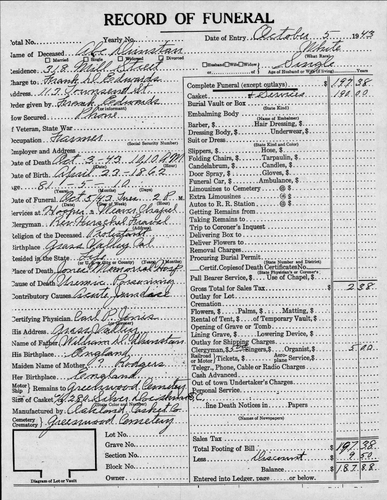 RECORD OF FUNERAL
Total No. Yearly No. Date of Entry October 5 1943
Name of Deceased Abe Dunstan White
Residence 318 Mill Street Single
Charge to Frank D. Edwards
Address 113 Townsend St
Order given by Frank Edwards
How Secured Phone
If Veteran, State War
Occupation Farmer
(Social Security Number)
Employer and Address
Date of Death Oct 3-43 10:10 A.M.
Date of Birth April 23-1862
Age 81-5-10
Date of Funeral Oct 5/43 Tues 2 P.M.
Services at Hooper & Weaver Chapel
Clergyman Rev
Religion of the Deceased Protestant
Birthplace Grass Valley Cal
Resided in the State Life
Place of Death Jones Memorial Hosp.
Cause of Death Uremic Poisoning
Contributory Causes Acute Jaundice
Certifying Physician Carl P. Jones
His Address Grass Valley
Name of Father William Dunstan
His Birthplace England
Maiden Name of Mother Rodgers
Her Birthplace England
Remains to Greenwood Cemetery
Size of Casket
Manufactured by Oakland Casket Co.
Cemetery
Crematory
Greenwood Cemetery
Lot No.
Grave No.
Section No.
Block No.
Owner
Diagram of Lot or Vault
Complete Funeral (except outlays) $ 197.38
Casket & Services
Burial Vault or Box
(State Kind)
Embalming Body
(Name of Embalmer)
Barber, $ Hair Dressing, $
Dressing Body, $ Underwear, $
Suit or Dress
(State Kind and Color)
Slippers, $ Hose, $
Folding Chairs, $ Tarpaulin, $
Candelabrum, $ Candles, $
Door Spray, $ Gloves, $
Funeral Car, $ Ambulance, $
Limousines to Cemetery @ $
Extra Limousines @ $
Autos to R. R. Station @ $
Getting Remains from
Taking Remains to
Trip to Coroner's Inquest
Delivering Box to
Deliver Flowers to
Removal Charges
Procuring Burial Permit
Certif. Copies of Death Certificate No.
Pall Bearer Service, $ Use of Chapel, $
Gross Total for Sales Tax $
Outlay for Lot
Cremation
Flowers, $ Palms, $ Matting, $
Rental of Tent, $ of Temporary Vault, $
Opening of Grave or Tomb
Lining Grave, $ Lowering Device, $
Outlay for Shipping Charges
Clergyman, $ Singers, $ Organist, $ 5.00
Railroad or Motor Tickets, $ Aero-plane Service, $
Telegr., Phone, Cable or Radio Charges
Cash Advanced
Out of town Undertaker's Charges
Personal Service
line Death Notices in Papers
(Names of Newspapers)
Sales Tax
Total Footing of Bill $ 197.38
Less Discount $ 9.50
Balance $ 187.88
Entered into Ledger, page or below.